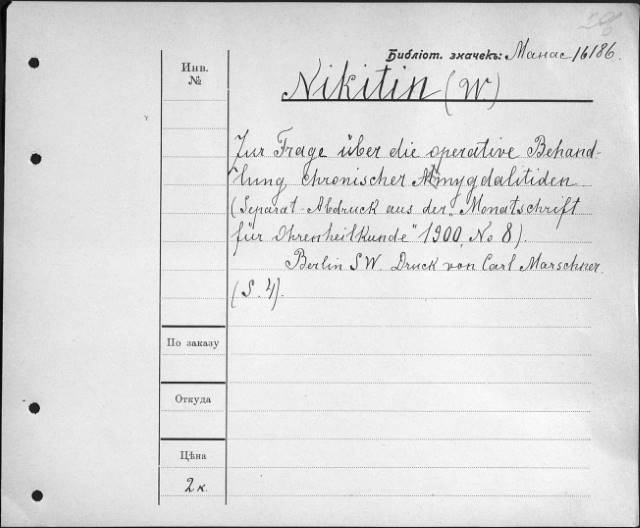 Библіот. значекъ: Манас 16186.
Инв.
№
Nikitin (W.)
Zur Frage über die operative Behand-
lung chronischer Amygdalitiden.
(Separat-Abdruck aus der „Monatschrift
für Ohrenheilkunde" 1900, No 8).
Berlin SW. Druck von Carl Marschner.
(S. 4).
По заказу
Откуда
Цѣна
2 к.